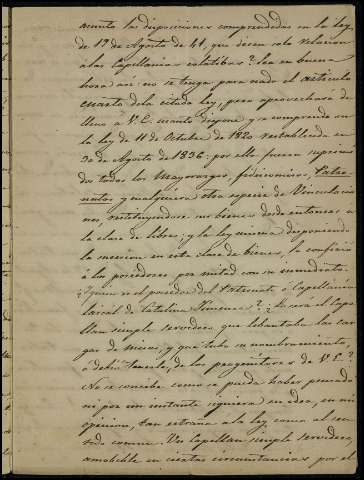 asunto las disposiciones comprendidas en la ley
de 19 de Agosto de 41, que dicen solo relacion
a las Capellanias colativas? Sea en buena
hora asi: no se tenga para nada el articulo
cuarto de la citada ley, pero aprovechará de
lleno á V.E. cuanto dispone y se comprende en
la ley de 11 de Octubre de 1820 restablecida en
30 de Agosto de 1836: por ella fueron suprimi
dos todos los Mayorazgos, fideicomisos, Patro
natos y cualquiera otra especie de Vinculacio
nes, restituyendose sus bienes desde entonces a
la clase de libres; y la ley misma disponiendo
la sucesion en esta clase de bienes, la confirió
á los poseedores por mitad con su inmediato.
¿Quien es el poseedor del Patronato ó Capellania
laical de Catalina Ximenez? ¿Lo será el Cape
llan simple servidor que levantaba las car
gas de misas, y que tubo su nombramiento,
ó debió tenerlo, de los progenitores de V.E.?
No se concibe como se pueda haber pensado
ni por un instante siquiera en idea, en mi
opinion, tan estraña a la ley como al sen
tido comun. Un Capellan simple servidor,
amobible en ciertas circunstancias por el